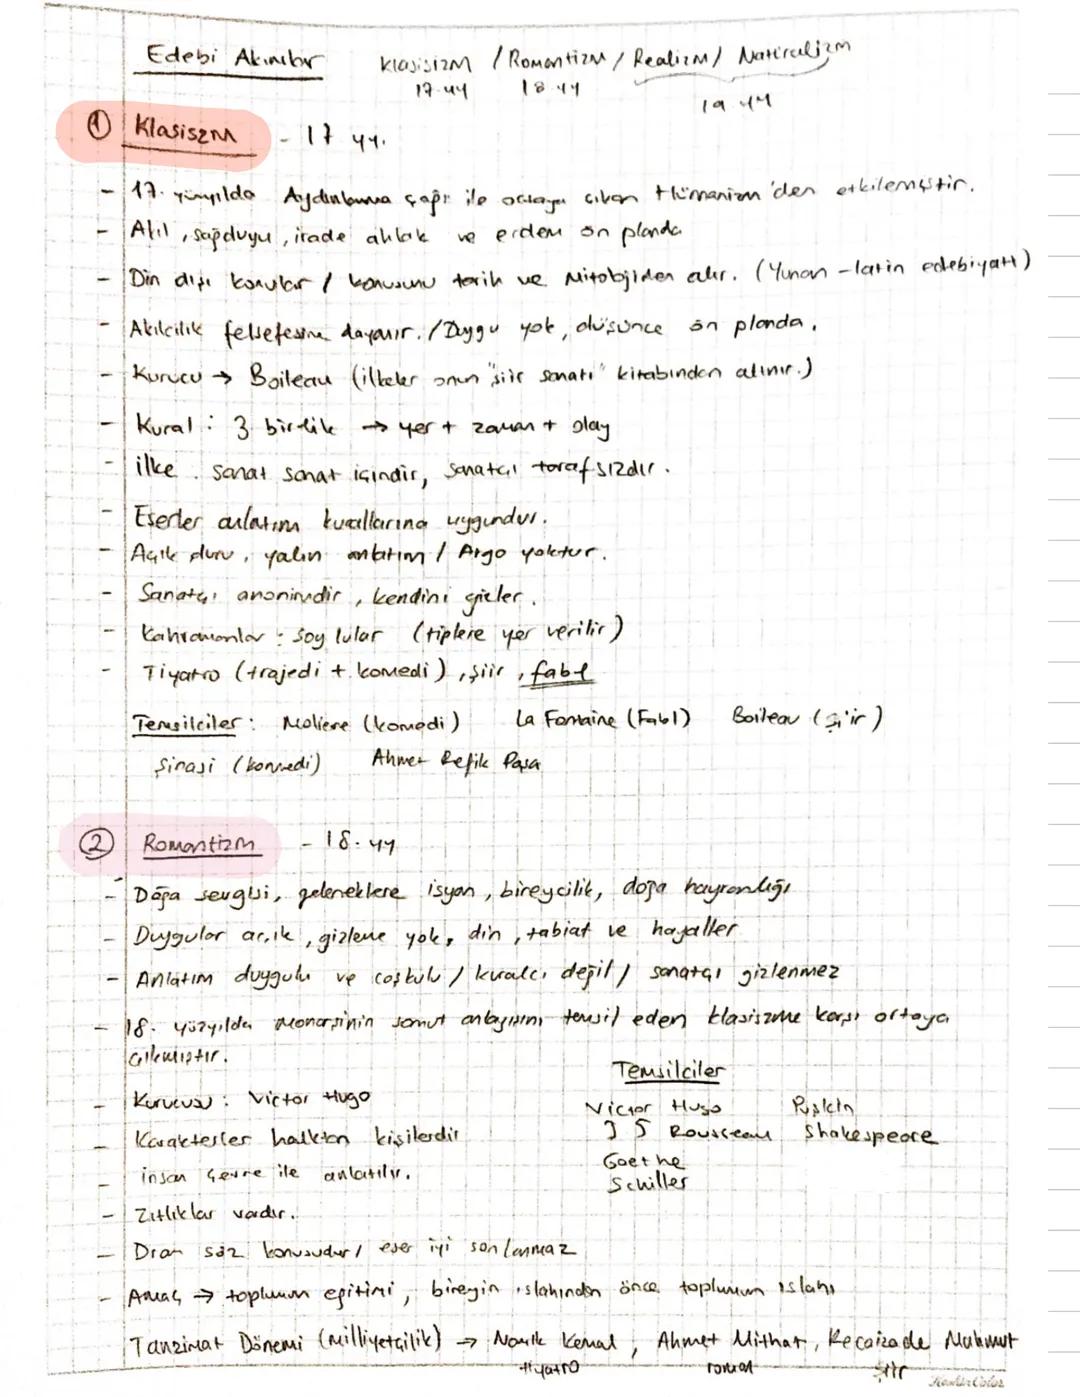 Edebi Akımlar
Klasisizm / Romantizm / Realizm / Natüralizm
17.yy 18.yy 19.yy
① Klasiszm - 17 yy.
- 17. yüzyılda Aydınlanma çağı ile ortaya çıkan Hümanizm'den etkilemiştir.
- Akıl, sağduyu, irade ahlak ve erdem ön planda
- Din dışı konular / konusunu tarih ve Mitolojiden alır. (Yunan - latin edebiyatı)
- Akılcılık felsefesine dayanır. / Duygu yok, düşünce ön planda.
- Kurucu → Boileau (ilkeler onun "şiir sanatı" kitabından alınır.)
- Kural: 3 birlik → yer + zaman + olay
- ilke. sanat sanat içindir, sanatçı tarafsızdır.
- Eserler anlatım kurallarına uygundur.
- Açık duru, yalın anlatım / Argo yoktur.
- Sanatçı anonimdir, kendini gizler.
- Kahramanlar: soylular (tiplere yer verilir)
- Tiyatro (trajedi + komedi), şiir, fabl
Temsilciler: Moliere (komedi) La Fontaine (Fabl) Boileau (şiir)
Şinasi (komedi) Ahmet Refik Paşa
② Romantizm - 18.yy
- Doğa sevgisi, geleneklere isyan, bireycilik, doğa hayranlığı
- Duygular açık, gizleme yok, din, tabiat ve hayaller
- Anlatım duygulu ve coşkulu / kuralcı değil / sanatçı gizlenmez
- 18. yüzyılda Monarşinin somut anlayışını temsil eden klasiszme karşı ortaya
çıkmıştır.
Temsilciler
- Kurucusu: Victor Hugo
Victor Hugo Puşkin
- Karakterler halktan kişilerdir
J J Rousseau Shakespeare
- insan çevre ile anlatılır.
Goethe
Schiller
- Zıtlıklar vardır.
- Dram söz konusudur / eser iyi sonlanmaz
- Amaç → toplumun eğitimi, bireyin ıslahından önce toplumun ıslahı
Tanzimat Dönemi (Milliyetçilik) → Namık Kemal, Ahmet Mithat, Recaizade Mahmut
tiyatro roman şiir